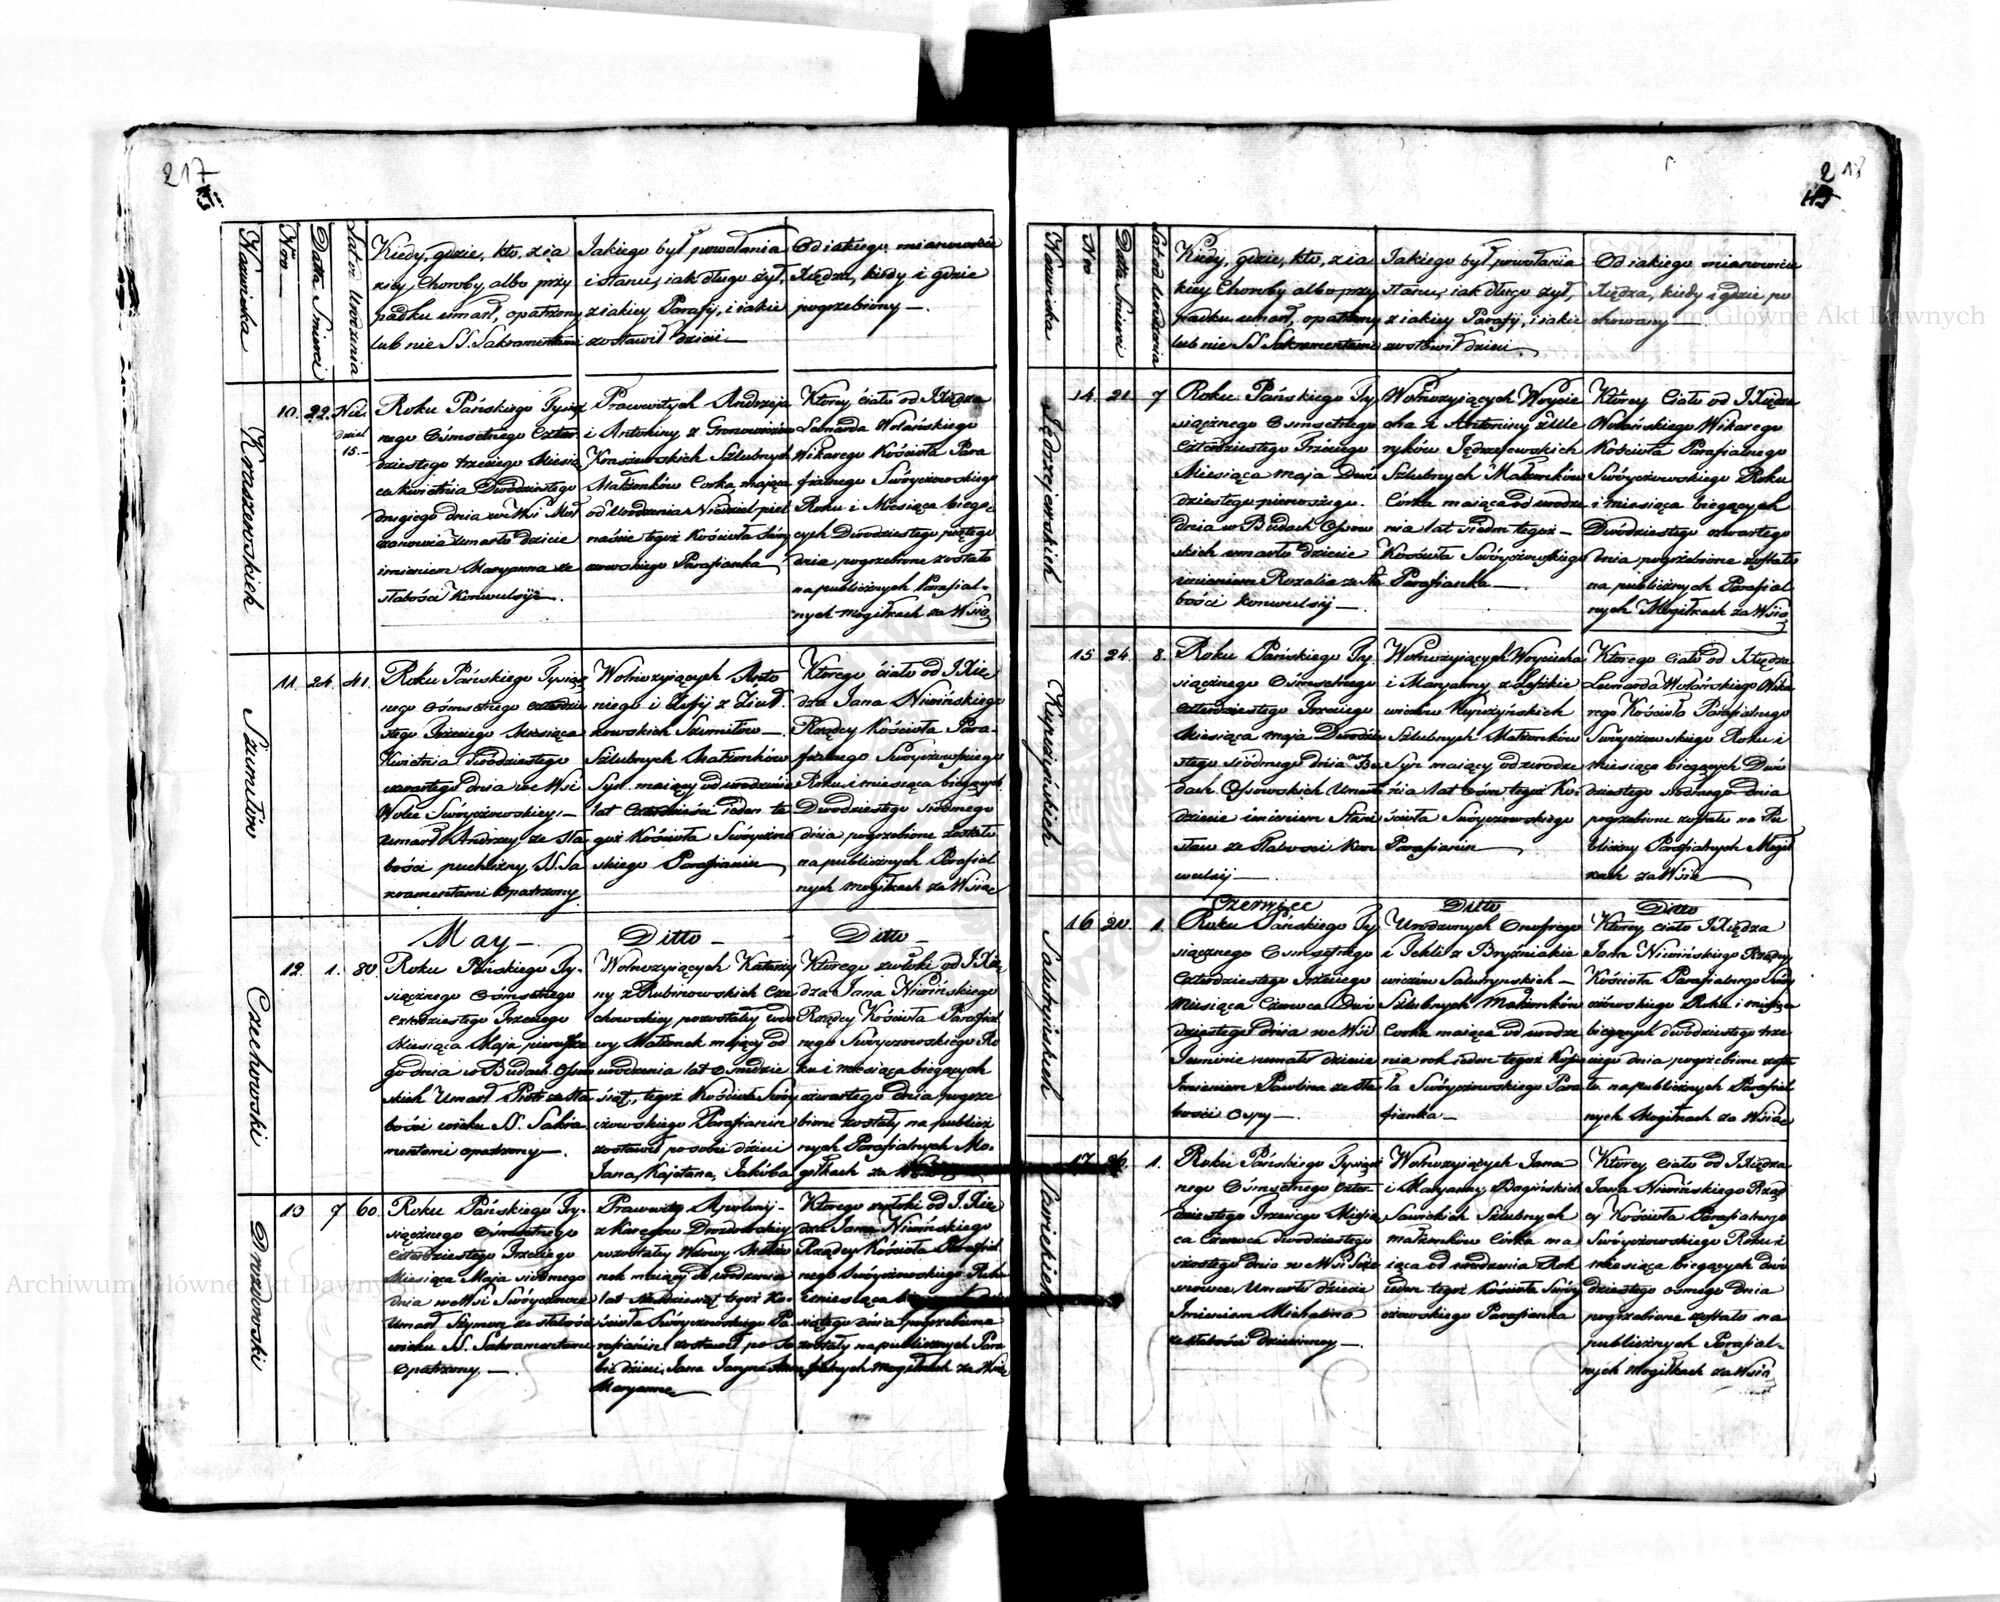 217
Nazwiska
Nro
Datta Smierci
Lat od Urodzenia
Kiedy, gdzie, kto, z ia
kiey Choroby, albo przy
padku umarł, opatrzony
lub nie SS. Sakramentami
Jakiego był powołania
i stanu, iak długo żył,
z iakiey Parafij, i iakie
zostawił dzieci
Od iakiego mianowicie
Xiędza, kiedy i gdzie
pogrzebiony
Kraszewskich
10. 22. Nie
dziel
15.
Roku Pańskiego Tysiąc
nego Osmsetnego Czter
dziestego trzeciego Miesią
ca Kwietnia Dwudziestego
drugiego dnia we Wsi
umarło dziecie
imieniem Maryanna ze
słabości Konwulsyi
Prawowitych Andrzeja
i Antoniny z
Kraszewskich Szlubnych
Małżonków Corka mająca
od Urodzenia Niedziel piet
naście tegoż Kościoła Swory
czowskiego Parafianka
Ktorey ciało od J Xiędza
Leonarda Wolańskiego
Wikarego Kościoła Para
fialnego Sworyczowskiego
Roku i Miesiąca bieżą
cych Dwudziestego piątego
dnia, pogrzebione zostało
na publicznych Parafial
nych mogiłkach za Wsią
Szumitow
11. 24. 41.
Roku Pańskiego Tysiąc
nego Osmsetnego czterdzie
stego Trzeciego Miesiąca
Kwietnia Dwudziestego
czwartego dnia we Wsi
Wolce Sworyczowskiey
umarł Andrzey ze sła
bości puchliny, SS. Sa
kramentami Opatrzony
Wolnożyjących Anto
niego i Zofij z
kowskich Szumitow
Szlubnych Małżonków
Syn maiący od urodzenia
lat Czterdzieści ieden te
goż Kościoła Sworyczow
skiego Parafianin
Ktorego ciało od J Xię
dza Jana Niwińskiego
Rządcy Kościoła Para
fialnego Sworyczowskiego
Roku i miesiąca bieżących
Dwudziestego siodmego
dnia pogrzebione zostało
na publicznych Parafial
nych mogiłkach za Wsią
May
Ditto
Ditto
Czechowski
12. 1. 80.
Roku Pańskiego Ty
siącznego Osmsetnego
Czterdziestego Trzeciego
Miesiąca Maja pierwsze
go dnia w Budach Ossow
skich Umarł Piotr ze sła
bości wieku SS. Sakra
mentami opatrzony
Wolnożyiących Katarzy
ny z Rubinowskich Cze
chowskiey pozostałey wdo
wy Małżonek maiący od
urodzenia lat Osmdzie
siąt, tegoż Kościoła Swory
czowskiego Parafianin
zostawił po sobie dzieci
Jana, Kajetana, Jakóba
Ktorego zwłoki od J Xię
dza Jana Niwińskiego
Rządcy Kościoła Parafial
nego Sworyczowskiego Ro
ku i miesiąca bieżących
czwartego dnia pogrze
bione zostały na publicz
nych Parafialnych Mo
giłkach za
Drozdowski
13 7 60.
Roku Pańskiego Ty
siącznego Osmsetnego
Czterdziestego Trzeciego
Miesiąca Maja siodmego
dnia we Wsi Sworyczowie
Umarł Szymon ze słabości
wieku SS. Sakramentami
opatrzony
Prawowitey Apolonij
z Drozdowskiey
pozostałey Wdowy Małżo
nek maiący od urodzenia
lat sześćdziesiąt tegoż Ko
ścioła Sworyczowskiego Pa
rafianin zostawił po so
bie dzieci, Jana
Maryannę
Ktorego zwłoki od J. Xię
dza Jana Niwińskiego
Rządcy Kościoła Parafial
nego Sworyczowskiego Roku
i miesiąca
dnia pogrzebione
zostały na publicznych Para
fialnych mogiłkach za Wsią
218
Nazwiska
Nro
Datta Smierci
Lat od Urodzenia
Kiedy, gdzie, kto, z ia
kiey Choroby albo przy
padku umarł, opatrzony
lub nie SS Sakramentami
Jakiego był powołania
stanu, iak długo żył,
z iakiey Parafij, i iakie
zostawił dzieci
Od iakiego mianowicie
Xiędza, kiedy i gdzie po
chowany
Jędrzejewskich
14. 21. 7
Roku Pańskiego Ty
siącznego Osmsetnego
Czterdziestego Trzeciego
Miesiąca maja Dwu
dziestego pierwszego
dnia w Budach Ossow
skich umarło dziecie
imieniem Rozalia ze sła
bości konwulsij
Wolnożyjących Woycie
cha i Antoniny z
Jędrzejewskich
Szlubnych Małżonków
Córka maiąca od urodze
nia lat siedm tegoż
Kościoła Sworyczowskiego
Parafianka
Ktorey Ciało od J Xiędza
Wolańskiego Wikarego
Kościoła Parafialnego
Sworyczowskiego Roku
i miesiąca bieżących
Dwudziestego czwartego
dnia pogrzebione zostało
na publicznych Parafial
nych Mogiłkach za Wsią
Kupczyńskich
15 24. 8.
Roku Pańskiego Ty
siącznego Osmsetnego
Czterdziestego Trzeciego
Miesiąca maja Dwudzie
stego siódmego dnia w Bu
dach Ossowskich Umarło
dziecie imieniem Stani
sław ze słabości Kon
wulsij
Wolnożyjących Woyciecha
i Maryanny z
Kupczyńskich
Szlubnych Małżonków
Syn maiący od urodze
nia lat ośm tegoż Ko
ścioła Sworyczowskiego
Parafianin
Ktorego ciało od J Xiędza
Leonarda Wolańskiego Wika
rego Kościoła Parafialnego
Sworyczowskiego Roku i
miesiąca bieżących Dwu
dziestego siodmego dnia
pogrzebione zostało na Pu
bliczny Parafialnych Mogił
kach za Wsią
Czerwiec
Ditto
Ditto
16 20. 1.
Roku Pańskiego Ty
siącznego Osmsetnego
Czterdziestego Trzeciego
Miesiąca Czerwca Dwu
dziestego dnia we Wsi
umarło dziecie
Imieniem Pawlina ze sła
bości Ospy
Urodzonych Onufrego
i Tekli z
Szlubnych Małżonków
Corka maiąca od urodze
nia rok ieden tegoż Kościo
ła Sworyczowskiego Para
fianka
Ktorey ciało J Xiędza
Jana Niwińskiego Rządcy
Kościoła Parafialnego Swory
czowskiego Roku i miesiąca
bieżących dwudziestego trze
ciego dnia pogrzebione zosta
ło na publicznych Parafial
nych Mogiłkach za Wsią
Sawickich
17. 26. 1.
Roku Pańskiego Tysiącz
nego Osmsetnego Czter
dziestego Trzeciego Miesią
ca Czerwca dwudziestego
szóstego dnia we Wsi
Umarło dziecie
Imieniem Michalina
ze słabości dziecinney
Wolnożyiących Jana
i Maryanny Bagińskich
Sawickich Szlubnych
małżonków Córka ma
iąca od urodzenia Rok
ieden tegoż Kościoła Swory
czowskiego Parafianka
Ktorey ciało od J Xiędza
Jana Niwińskiego Rząd
cy Kościoła Parafialnego
Sworyczowskiego Roku i
miesiąca bieżących dwu
dziestego osmego dnia
pogrzebione zostało na
publicznych Parafial
nych Mogiłkach za Wsią
Archiwum Główne Akt Dawnych
Archiwum Główne Akt Dawnych